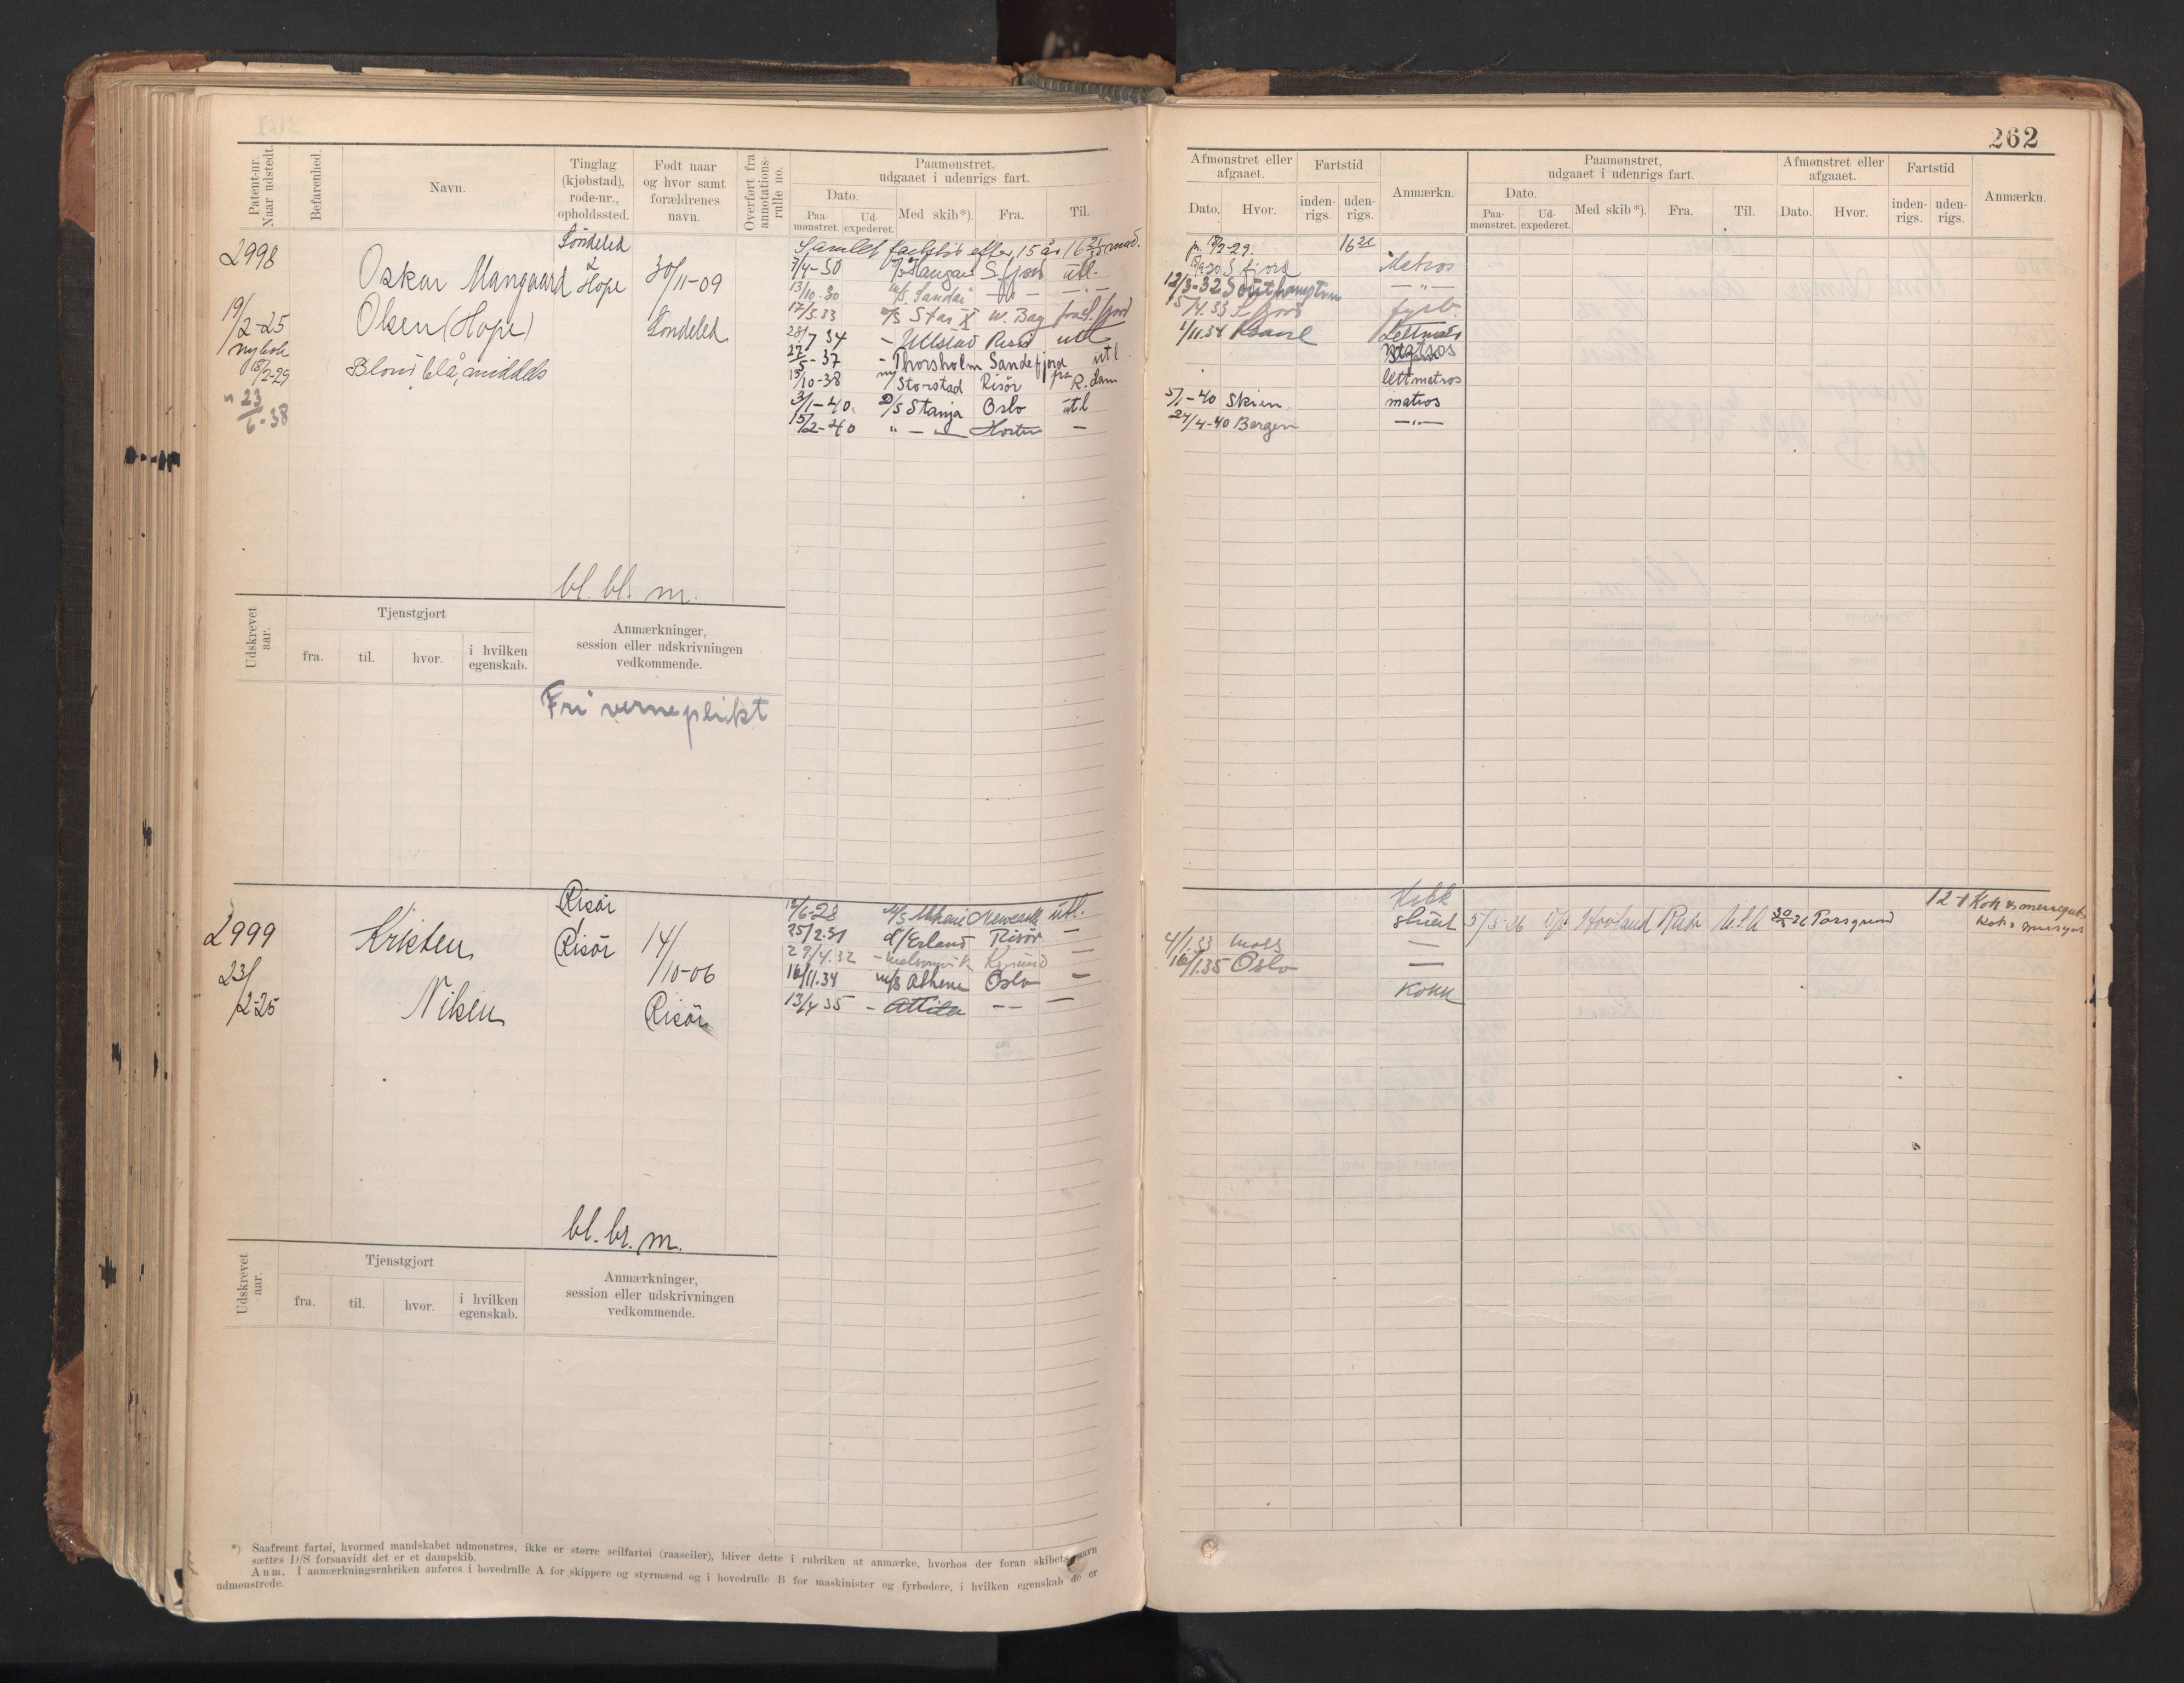 262
Patent-nr. Naar udstedt.
Befarenhed.
Navn.
Tinglag (kjøbstad), rode-nr., opholdssted.
Født naar og hvor samt forældrenes navn.
Overført fra annotations-rulle no.
Paamønstret, udgaaet i udenrigs fart.
Dato.
Paa-mønstret.
Ud-expederet.
Med skib*).
Fra.
Til.
Afmønstret eller afgaaet.
Dato.
Hvor.
Fartstid
inden-rigs.
uden-rigs.
Anmærkn.
Paamønstret, udgaaet i udenrigs fart.
Dato.
Paa-mønstret.
Ud-expederet.
Med skib*).
Fra.
Til.
Afmønstret eller afgaaet.
Dato.
Hvor.
Fartstid
inden-rigs.
uden-rigs.
Anmærkn.
2998
19/2-25
ny bok
18/2-29
" 23/6-38
Oskar Mangaard
Olsen (Hope)
Blond blå, middels
Søndeled
Hope
30/11-09
Søndeled
Samlet fartstid efter 15 år 16
7/4-30 S.fjord utl.
13/10-30 M/S Sandar
17/5.33 M/S Star X W. Bay S.fjord
28/7 34 - Ullstad utl
27/5-37 - Thorsholm Sandefjord utl
13/10-38 Storstad Risør R.dam
3/1-40. D/S Stanja Oslo utl
15/2-40 " - " Horten -
18/2-29. 16
S.fjord Matros
12/3-32 Southampton -"-
5/4.33 S.fjord fyrb.
1/11.34 Lettmatros
Matros
lettmatros
5/1-40 Skien matros
24/4-40 Bergen -"-
bl. bl. m.
Udskrevet aar.
Tjenstgjort
fra. til. hvor. i hvilken egenskab.
Anmærkninger, session eller udskrivningen vedkommende.
Fri verneplikt
2999
23/2-25
Kristen
Nilsen
Risør
Risør
14/10-06
Risør
12/6-28 M/S Athene Newcastle utl.
25/2.31 d/ Erland Risør -
29/4.32 - K.sund -
16/11.34 m/s Athene Oslo -
13/4 35 - Attila - - -
Kokk
Stuert
4/1.33 Moss -
16/1.35 Oslo -
Kokk
5/5-36 D/S Hovland U.S.A Porsgrund
12-1
bl. br. m.
Udskrevet aar.
Tjenstgjort
fra. til. hvor. i hvilken egenskab.
Anmærkninger, session eller udskrivningen vedkommende.
*) Saafremt fartøi, hvormed mandskabet udmønstres, ikke er større seilfartøi (raaseiler), bliver dette i rubriken at anmærke, hvorhos der foran skibets navn
sættes D/S forsaavidt det er et dampskib.
Anm. I anmærkningsrubriken anføres i hovedrulle A for skippere og styrmænd og i hovedrulle B for maskinister og fyrbødere, i hvilken egenskab de er
udmønstrede.